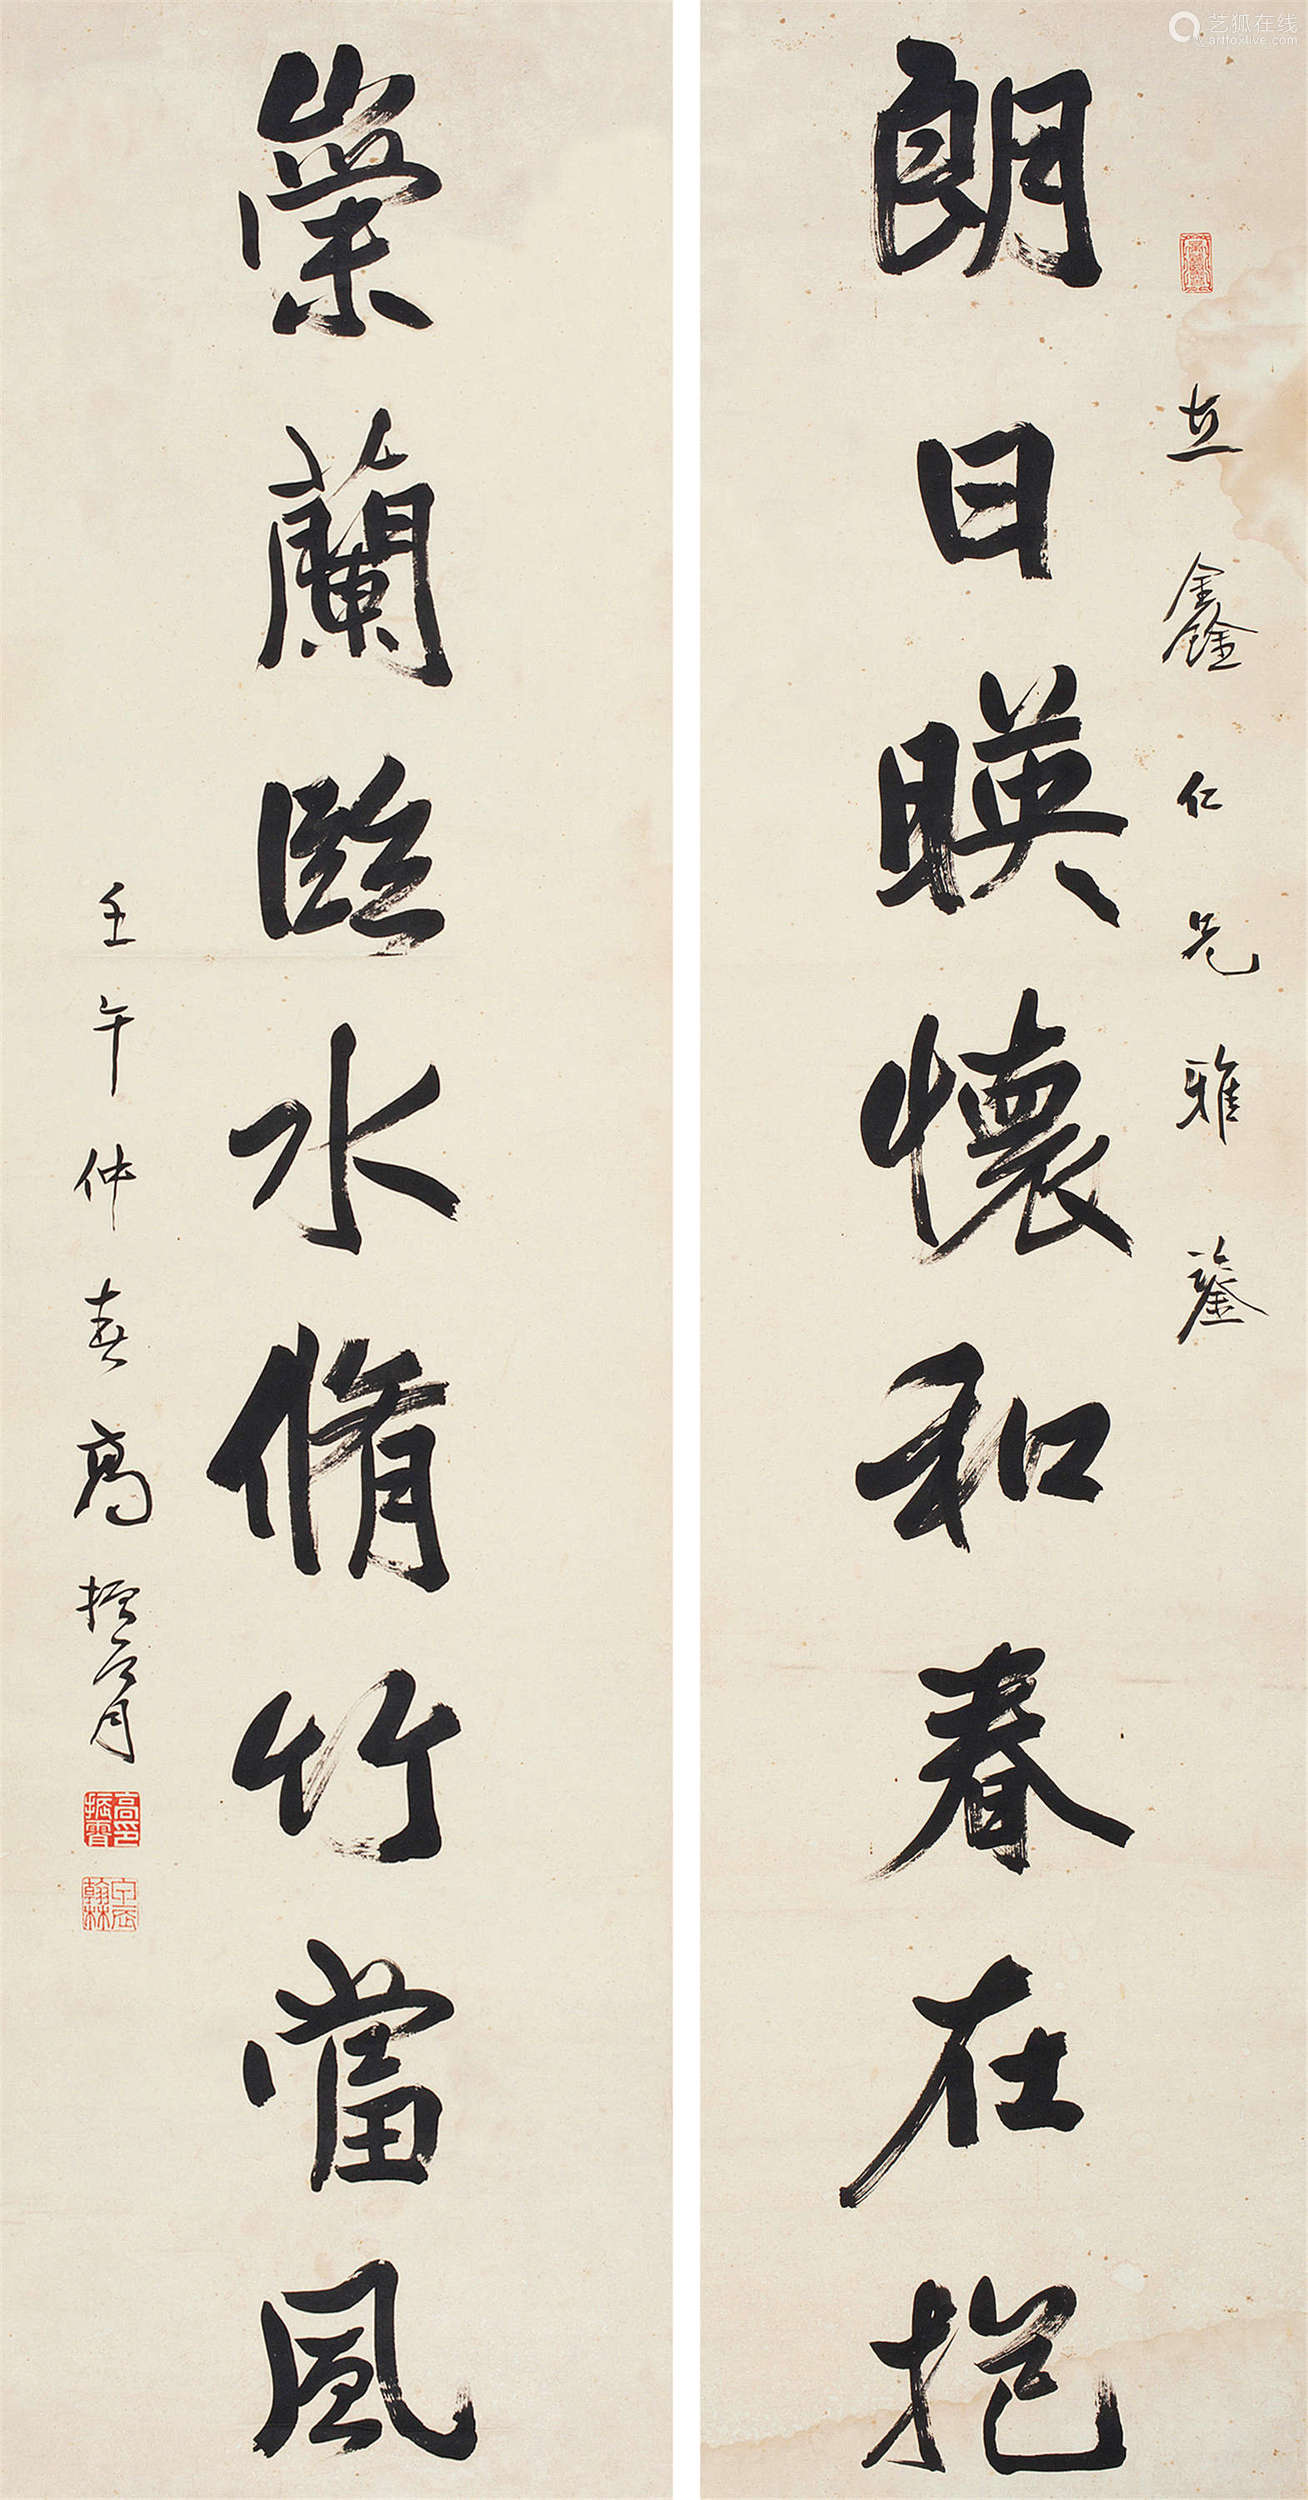 朗日暎懷和春在抱
立鑫仁兄雅鑒
崇蘭臨水脩竹當風
壬午仲春高振霄
高印振霄
翰林
艺狐在线
artfoxlive.com